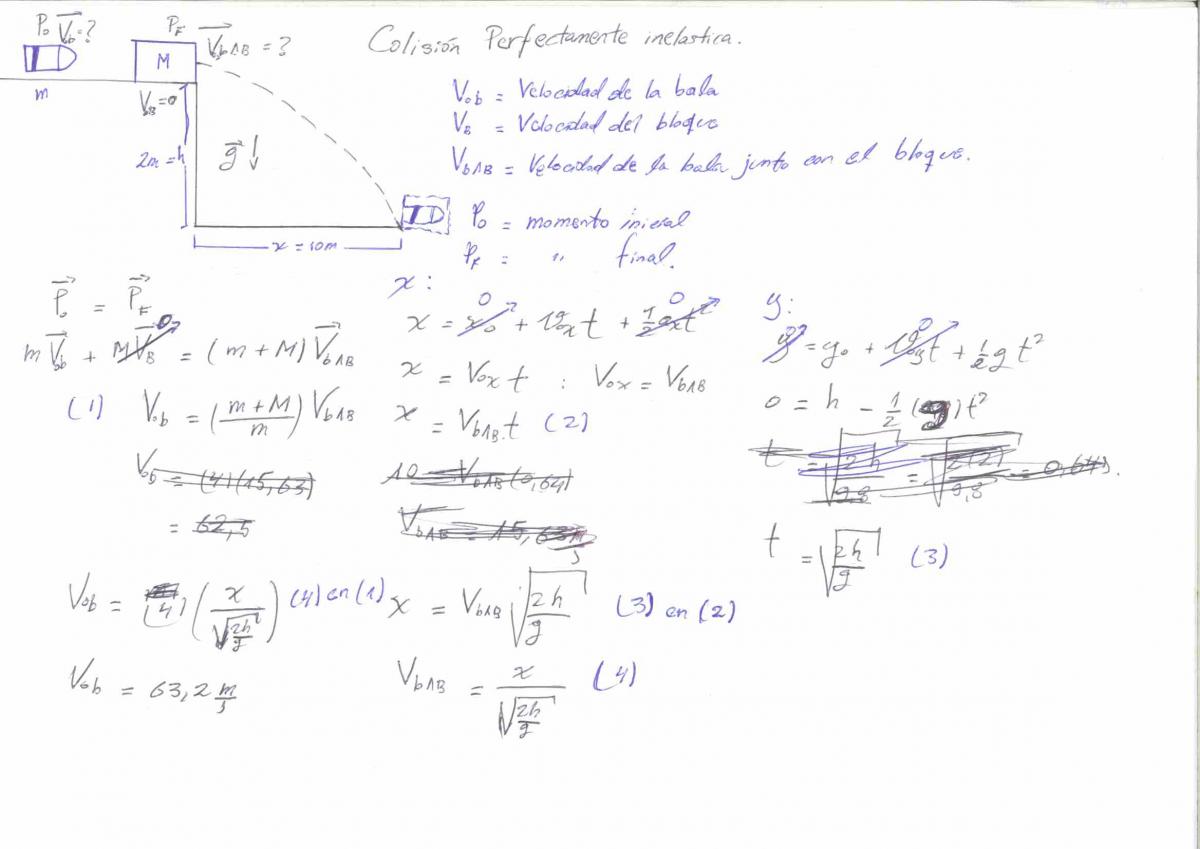 P₀ V⃗b=?
m
P_F V⃗b∧B = ?
M
V_B=0
2m=h
g⃗ ↓
x = 10m
Colisión Perfectamente inelastica.
V₀b = Velocidad de la bala
V_B = Velocidad del bloque
Vb∧B = Velocidad de la bala junto con el bloque.
P₀ = momento inicial
P_F = " final.
P⃗₀ = P⃗_F
m V⃗₀b + M V⃗_B 0 = (m + M) V⃗b∧B
(1) V₀b = ((m+M)/m) Vb∧B
V₀b = (4)(15,63)
= 62,5
V₀b = (4) (x/√(2h/g)) (4) en (1)
V₀b = 63,2 m/s
x :
x = x₀ 0 + v₀x t + ½ax t² 0
x = V₀x t : V₀x = Vb∧B
x = Vb∧B.t (2)
10 = Vb∧B (0,64)
Vb∧B = 15,63 m/s
x = Vb∧B √(2h/g) (3) en (2)
Vb∧B = x/√(2h/g) (4)
y:
y = y₀ + v₀y t 0 + ½ g t²
0 = h - ½ (g) t²
t = √(2h/9,8) = √(2(2)/9,8) = 0,64s.
t = √(2h/g) (3)